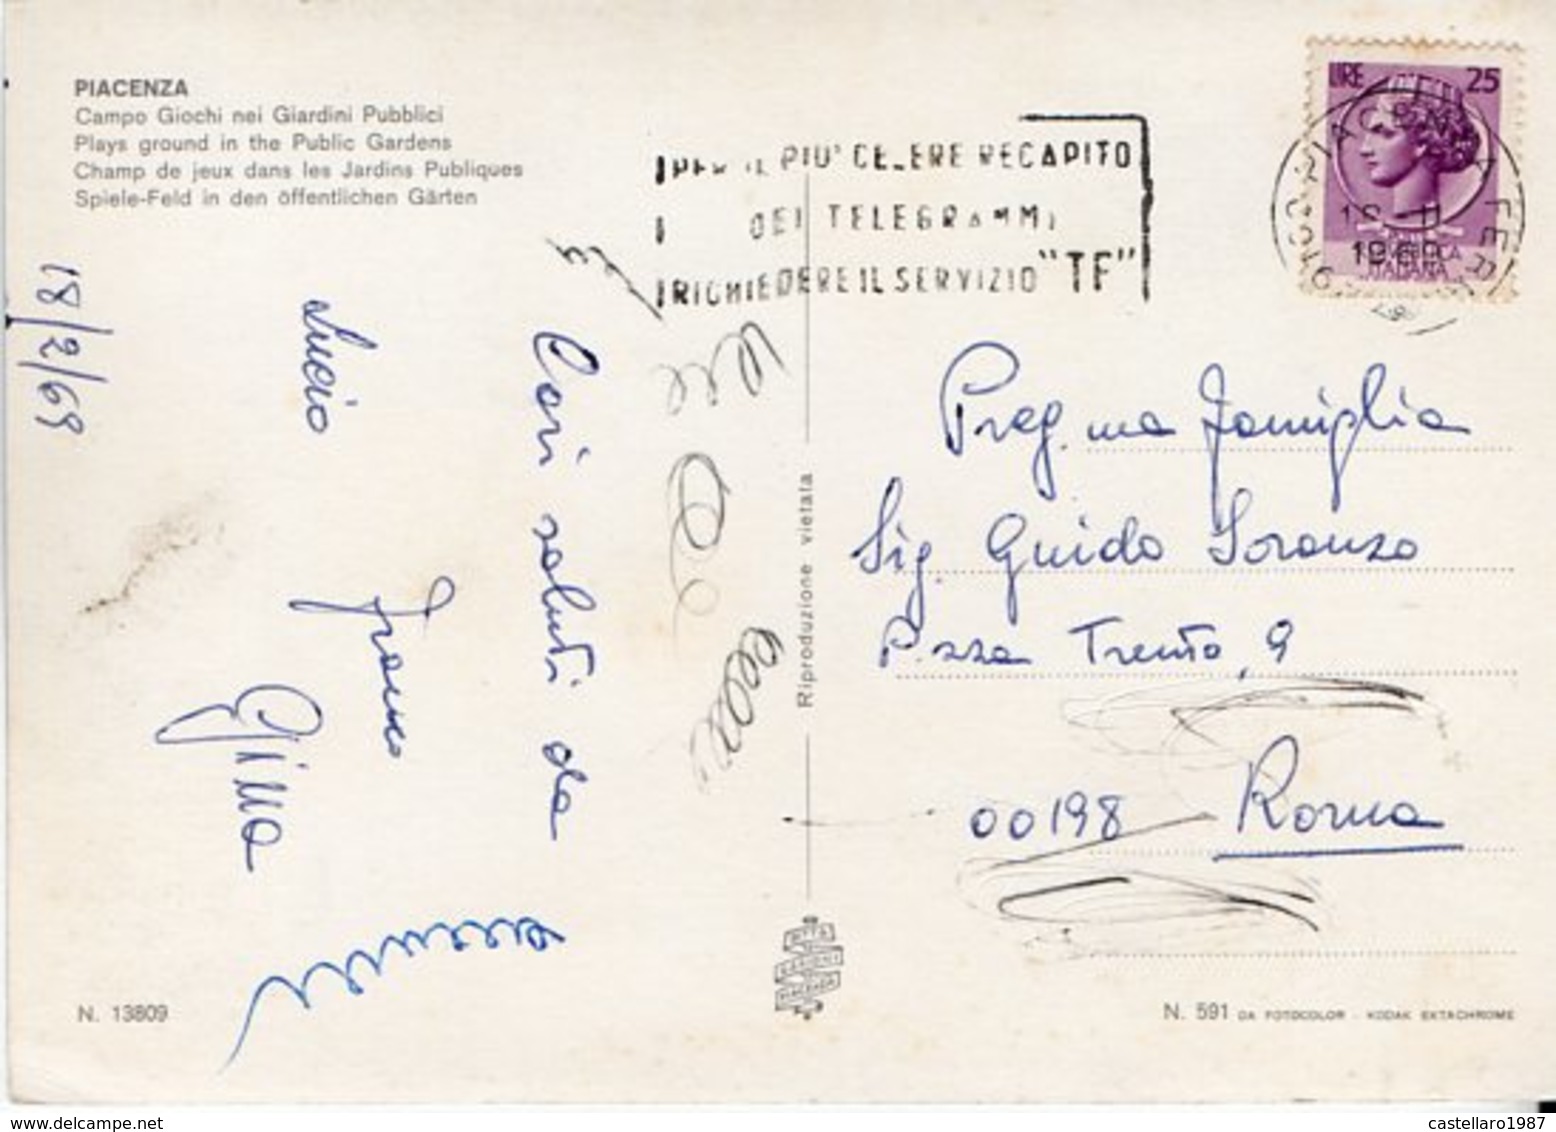 PIACENZA
Campo Giochi nei Giardini Pubblici
Plays ground in the Public Gardens
Champ de jeux dans les Jardins Publiques
Spiele-Feld in den öffentlichen Gärten
18/2/69
Cari saluti da
Lucio
Franco
Gina
PER IL PIU' CELERE RECAPITO
DEI TELEGRAMMI
RICHIEDERE IL SERVIZIO "TF"
LIRE 25
ITALIANA
PIACENZA FERR
1969
Preg.ma Famiglia
Sig. Guido Soranzo
P.zza Trento, 9
00198 Roma
Riproduzione vietata
DITTA
PIACENZA
N. 13809
N. 591 DA FOTOCOLOR - KODAK EKTACHROME
castellaro1987